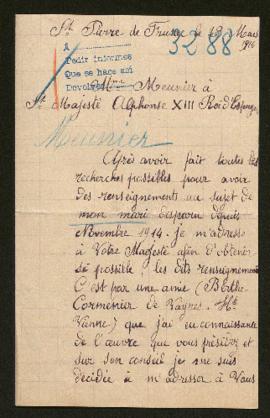 St Pierre de le 12 Mars
1916
3288
A
Pedir informes
Que se hace así
Devolver
Mme Meunier à
Sa Majesté Alphonse XIII Roi d'Espagne
Meunier
Après avoir fait toutes les
recherches possibles pour avoir
des renseignements au sujet de
mon mari disparu depuis
Novembre 1914. je m'adresse
à Votre Majesté afin d'obtenir
se possible ! les dits renseignements
C'est par une amie (Berthe
Cormenier de Vaynes. Hte
Vienne) que j'ai eu connaissance
de l'œuvre que vous présidez et
sur son conseil je me suis
décidée à m'adresser à Vous